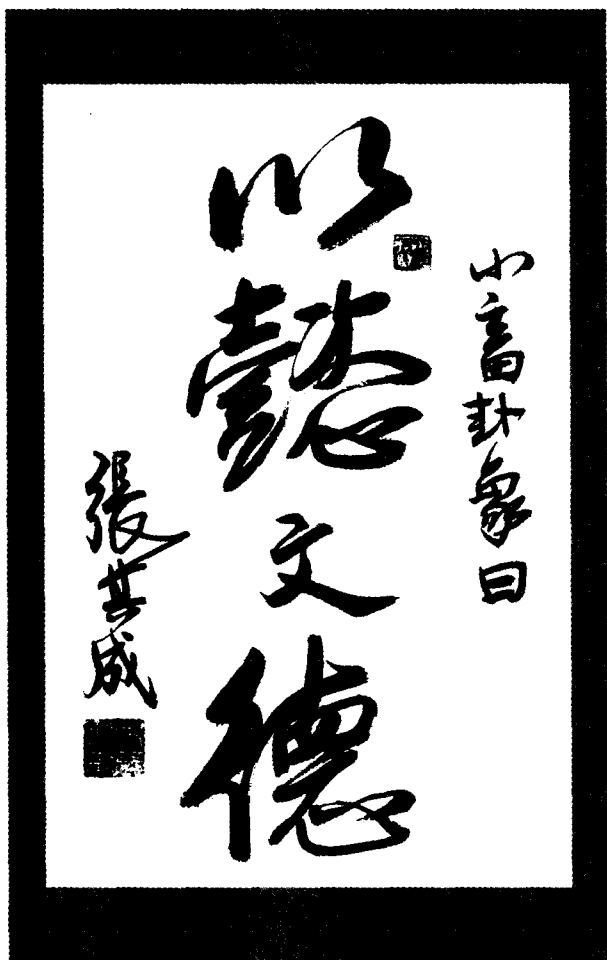 小畜卦象曰
以懿文德
張其成